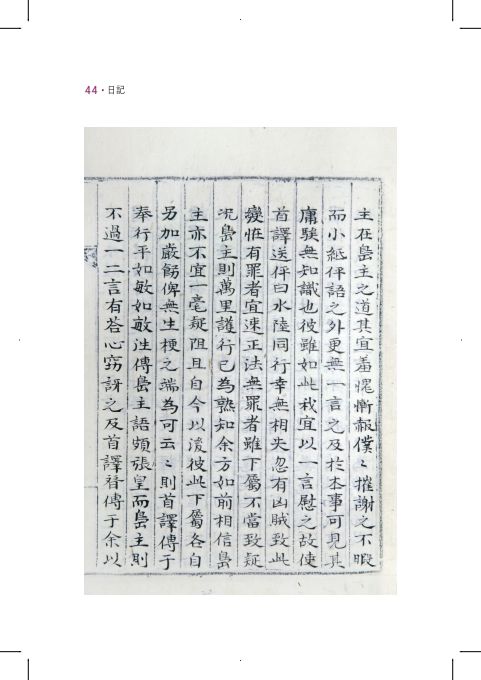 44 · 日記
主在島主之道其宜羞愧慚赧僕〻摧謝之不暇
而小紙伻語之外更無一言之及於本事可見其
庸騃無知識也彼雖如此我宜以一言慰之故使
首譯送伻曰水陸同行幸無相失忽有凶賊致此
變恠有罪者宜速正法無罪者雖下屬不當致疑
况島主則萬里護行已為熟知余方如前相信島
主亦不宜一毫疑阻且自今以後彼此下屬各自
另加嚴飭俾無生梗之端為可云〻則首譯傳于
奉行平如敏如敏往傳島主語頗張皇而島主則
不過一二言有答心竊訝之及首譯替傳于余以